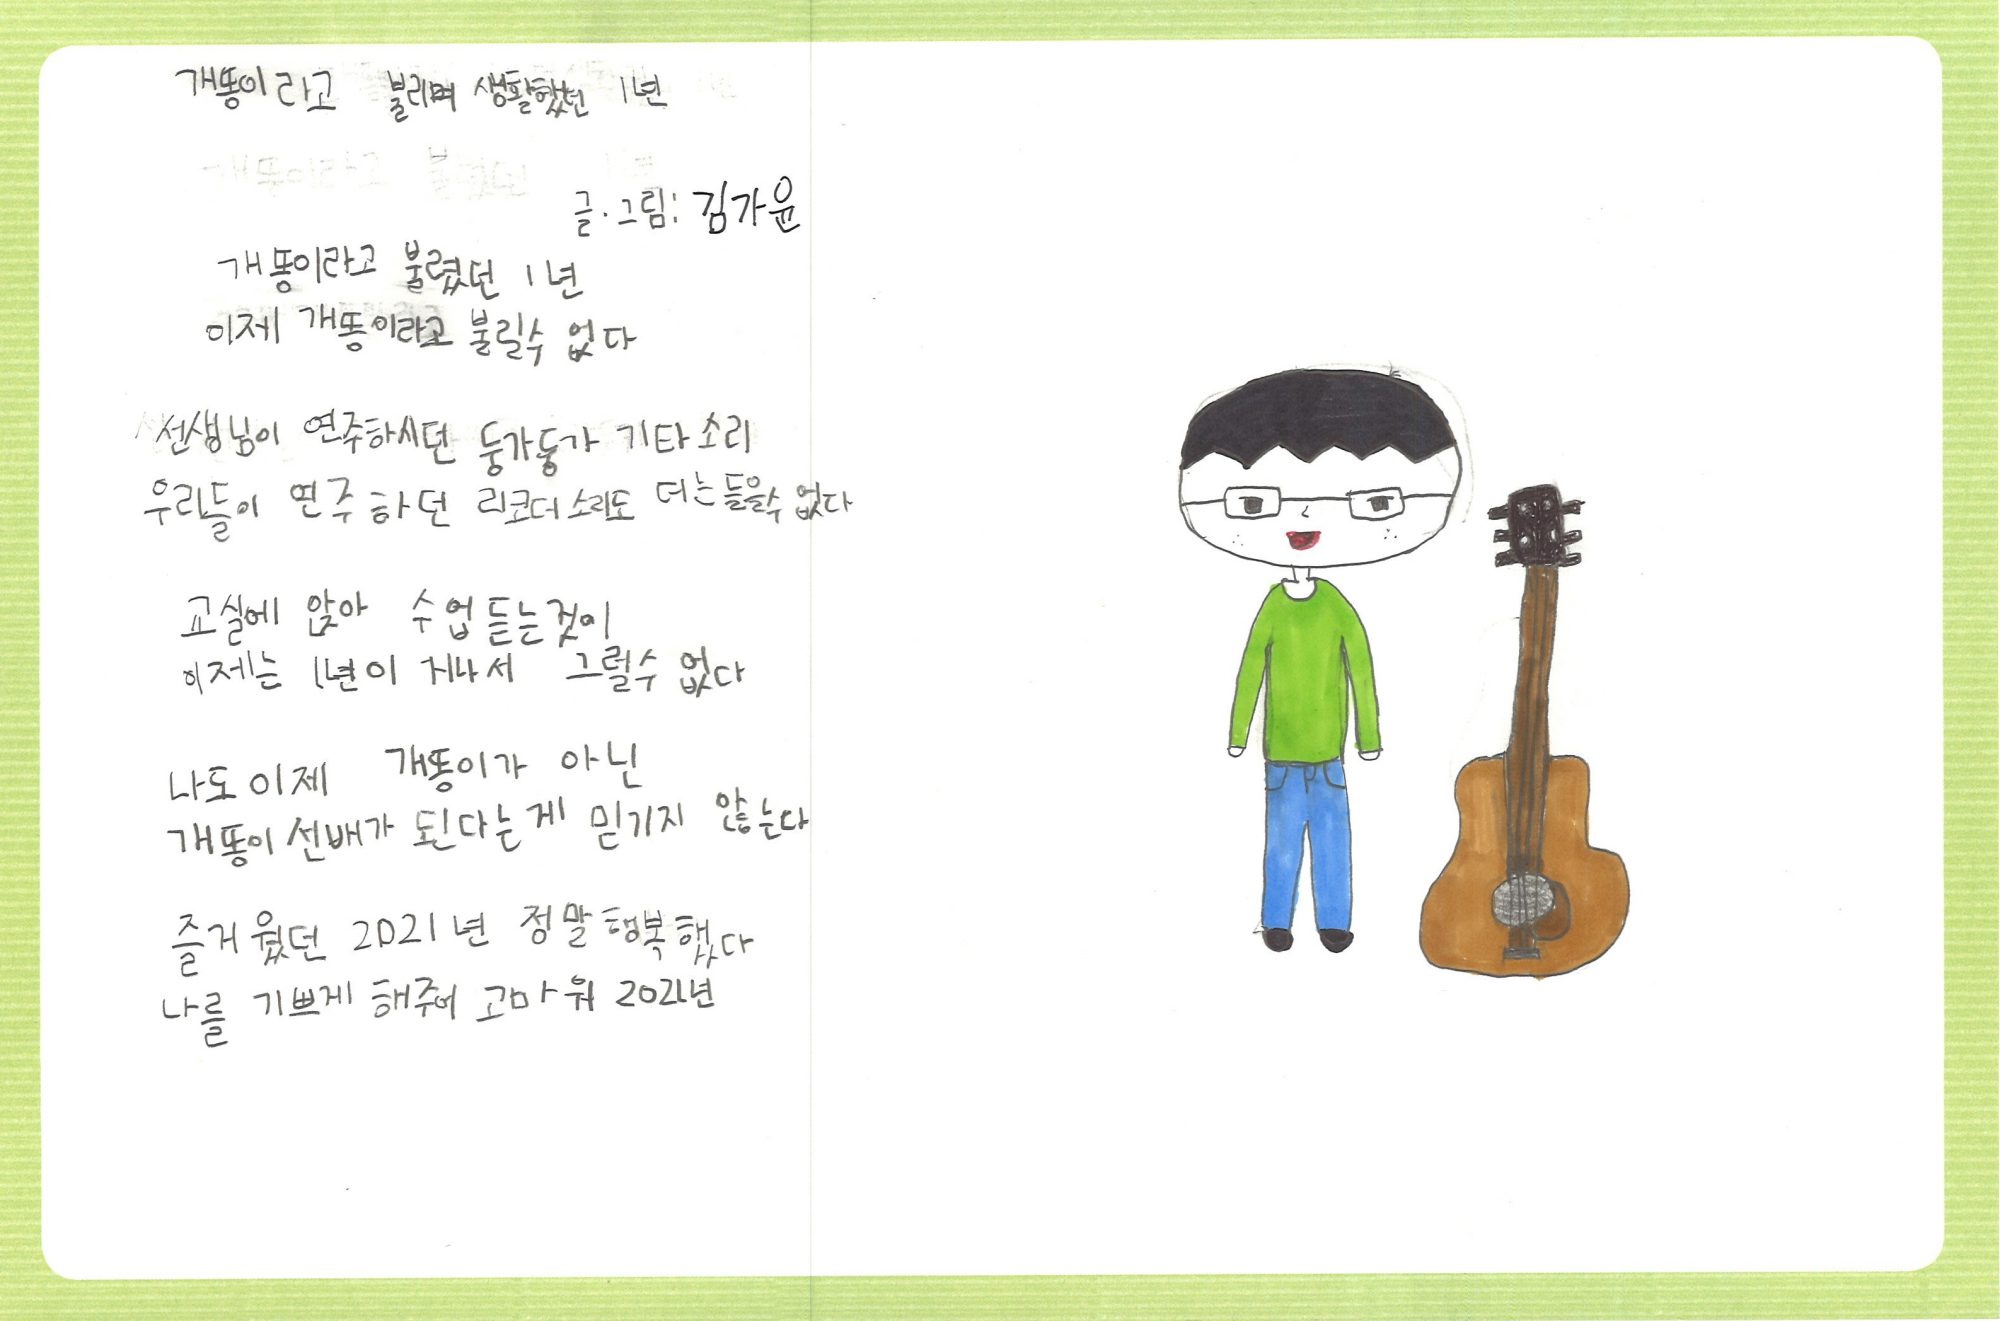 개똥이라고 불리며 생활했던 1년
글·그림: 김가윤
개똥이라고 불렸던 1년
이제 개똥이라고 불릴수 없다
선생님이 연주하시던 둥가둥가 기타소리
우리들이 연주하던 리코더 소리도 더는 들을수 없다
교실에 앉아 수업 듣는것이
이제는 1년이 지나서 그럴수 없다
나도 이제 개똥이가 아닌
개똥이 선배가 된다는게 믿기지 않는다
즐거웠던 2021년 정말 행복했다
나를 기쁘게 해주어 고마워 2021년